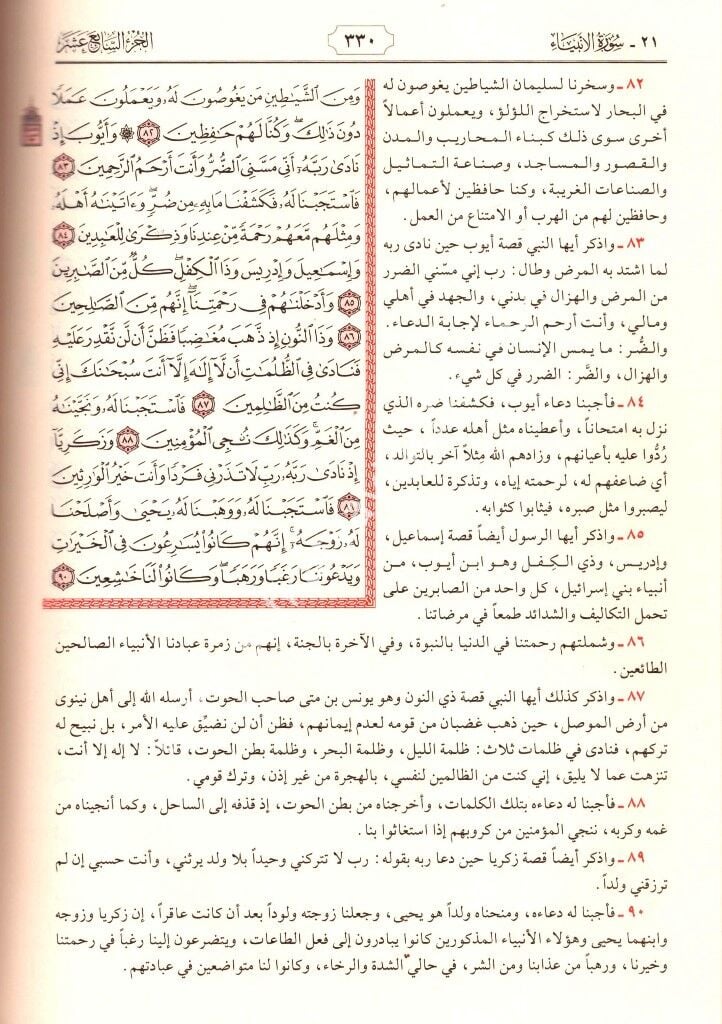 ٢١ - سُورَةُ الأنبيَاء
٣٣٠
الجزء السَّابع عَشَر
وَمِنَ ٱلشَّيَٰطِينِ مَن يَغُوصُونَ لَهُۥ وَيَعْمَلُونَ عَمَلًا
دُونَ ذَٰلِكَۖ وَكُنَّا لَهُمْ حَٰفِظِينَ ٨٢ ۞ وَأَيُّوبَ إِذْ
نَادَىٰ رَبَّهُۥٓ أَنِّي مَسَّنِيَ ٱلضُّرُّ وَأَنتَ أَرْحَمُ ٱلرَّٰحِمِينَ ٨٣
فَٱسْتَجَبْنَا لَهُۥ فَكَشَفْنَا مَا بِهِۦ مِن ضُرٍّۖ وَءَاتَيْنَٰهُ أَهْلَهُۥ
وَمِثْلَهُم مَّعَهُمْ رَحْمَةً مِّنْ عِندِنَا وَذِكْرَىٰ لِلْعَٰبِدِينَ ٨٤
وَإِسْمَٰعِيلَ وَإِدْرِيسَ وَذَا ٱلْكِفْلِۖ كُلٌّ مِّنَ ٱلصَّٰبِرِينَ
٨٥ وَأَدْخَلْنَٰهُمْ فِي رَحْمَتِنَآۖ إِنَّهُم مِّنَ ٱلصَّٰلِحِينَ
٨٦ وَذَا ٱلنُّونِ إِذ ذَّهَبَ مُغَٰضِبًا فَظَنَّ أَن لَّن نَّقْدِرَ عَلَيْهِ
فَنَادَىٰ فِي ٱلظُّلُمَٰتِ أَن لَّآ إِلَٰهَ إِلَّآ أَنتَ سُبْحَٰنَكَ إِنِّي
كُنتُ مِنَ ٱلظَّٰلِمِينَ ٨٧ فَٱسْتَجَبْنَا لَهُۥ وَنَجَّيْنَٰهُ
مِنَ ٱلْغَمِّۚ وَكَذَٰلِكَ نُۨجِي ٱلْمُؤْمِنِينَ ٨٨ وَزَكَرِيَّآ
إِذْ نَادَىٰ رَبَّهُۥ رَبِّ لَا تَذَرْنِي فَرْدًا وَأَنتَ خَيْرُ ٱلْوَٰرِثِينَ
٨٩ فَٱسْتَجَبْنَا لَهُۥ وَوَهَبْنَا لَهُۥ يَحْيَىٰ وَأَصْلَحْنَا
لَهُۥ زَوْجَهُۥٓۚ إِنَّهُمْ كَانُوا۟ يُسَٰرِعُونَ فِي ٱلْخَيْرَٰتِ
وَيَدْعُونَنَا رَغَبًا وَرَهَبًاۖ وَكَانُوا۟ لَنَا خَٰشِعِينَ ٩٠
٨٢ ـ وسخرنا لسليمان الشياطين يغوصون له
في البحار لاستخراج اللؤلؤ، ويعملون أعمالاً
أخرى سوى ذلك كبناء المحاريب والمدن
والقصور والمساجد، وصناعة التماثيل
والصناعات الغريبة، وكنا حافظين لأعمالهم،
وحافظين لهم من الهرب أو الامتناع من العمل.
٨٣ ـ واذكر أيها النبي قصة أيوب حين نادى ربه
لما اشتد به المرض وطال: رب إني مسّني الضرر
من المرض والهزال في بدني، والجهد في أهلي
ومالي، وأنت أرحم الرحماء لإجابة الدعاء.
والضُر: ما يمس الإنسان في نفسه كالمرض
والهزال، والضَّر: الضرر في كل شيء.
٨٤ ـ فأجبنا دعاء أيوب، فكشفنا ضره الذي
نزل به امتحاناً، وأعطيناه مثل أهله عدداً، حيث
رُدُّوا عليه بأعيانهم، وزادهم الله مثلاً آخر بالتوالد،
أي ضاعفهم له، لرحمته إياه، وتذكرة للعابدين،
ليصبروا مثل صبره، فيثابوا كثوابه.
٨٥ ـ واذكر أيها الرسول أيضاً قصة إسماعيل،
وإدريس، وذي الكِفل وهو ابن أيوب، من
أنبياء بني إسرائيل، كل واحد من الصابرين على
تحمل التكاليف والشدائد طمعاً في مرضاتنا.
٨٦ ـ وشملتهم رحمتنا في الدنيا بالنبوة، وفي الآخرة بالجنة، إنهم من زمرة عبادنا الأنبياء الصالحين
الطائعين.
٨٧ ـ واذكر كذلك أيها النبي قصة ذي النون وهو يونس بن متى صاحب الحوت، أرسله الله إلى أهل نينوى
من أرض الموصل، حين ذهب غضبان من قومه لعدم إيمانهم، فظن أن لن نضيِّق عليه الأمر، بل نبيح له
تركهم، فنادى في ظلمات ثلاث: ظلمة الليل، وظلمة البحر، وظلمة بطن الحوت، قائلاً: لا إله إلا أنت،
تنزهت عما لا يليق، إني كنت من الظالمين لنفسي، بالهجرة من غير إذن، وترك قومي.
٨٨ ـ فأجبنا له دعاءه بتلك الكلمات، وأخرجناه من بطن الحوت، إذ قذفه إلى الساحل، وكما أنجيناه من
غمه وكربه، ننجي المؤمنين من كروبهم إذا استغاثوا بنا.
٨٩ ـ واذكر أيضاً قصة زكريا حين دعا ربه بقوله: رب لا تتركني وحيداً بلا ولد يرثني، وأنت حسبي إن لم
ترزقني ولداً.
٩٠ ـ فأجبنا له دعاءه، ومنحناه ولداً هو يحيى، وجعلنا زوجته ولوداً بعد أن كانت عاقراً، إن زكريا وزوجه
وابنهما يحيى وهؤلاء الأنبياء المذكورين كانوا يبادرون إلى فعل الطاعات، ويتضرعون إلينا رغباً في رحمتنا
وخيرنا، ورهباً من عذابنا ومن الشر، في حالي الشدة والرخاء، وكانوا لنا متواضعين في عبادتهم.